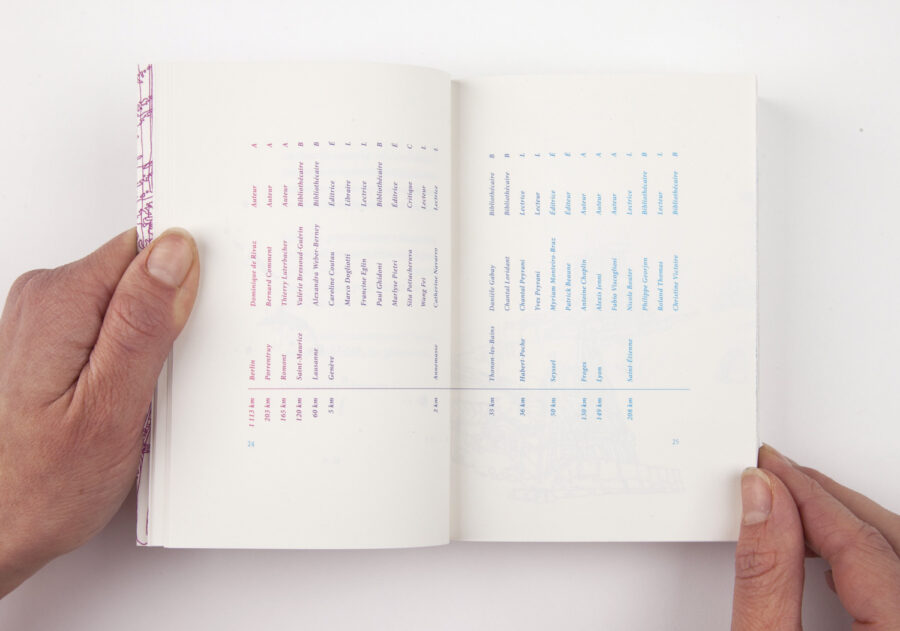 1 113 km Berlin Dominique de Rivaz Auteur A
203 km Porrentruy Bernard Comment Auteur A
165 km Romont Thierry Luterbacher Auteur A
120 km Saint-Maurice Valérie Bressoud-Guérin Bibliothécaire B
60 km Lausanne Alexandra Weber-Berney Bibliothécaire B
5 km Genève Caroline Coutau Éditrice É
Marco Dogliotti Libraire L
Francine Eglin Lectrice L
Paul Ghidoni Bibliothécaire B
Marlyse Pietri Éditrice É
Sita Pottacheruva Critique C
Wang Fei Lecteur L
2 km Annemasse Catherine Navarro Lectrice L
24
33 km Thonon-les-Bains Danièle Gabay Bibliothécaire B
Chantal Loridant Bibliothécaire B
36 km Habert-Poche Chantal Peyrani Lectrice L
Yves Peyrani Lecteur L
50 km Seyssel Myriam Monteiro-Braz Éditrice É
Patrick Beaune Éditeur É
130 km Froges Antoine Choplin Auteur A
149 km Lyon Alexis Jenni Auteur A
Fabio Viscogliosi Auteur A
208 km Saint-Étienne Nicole Bouter Lectrice L
Philippe Georjon Bibliothécaire B
Roland Thomas Lecteur L
Christine Victoire Bibliothécaire B
25